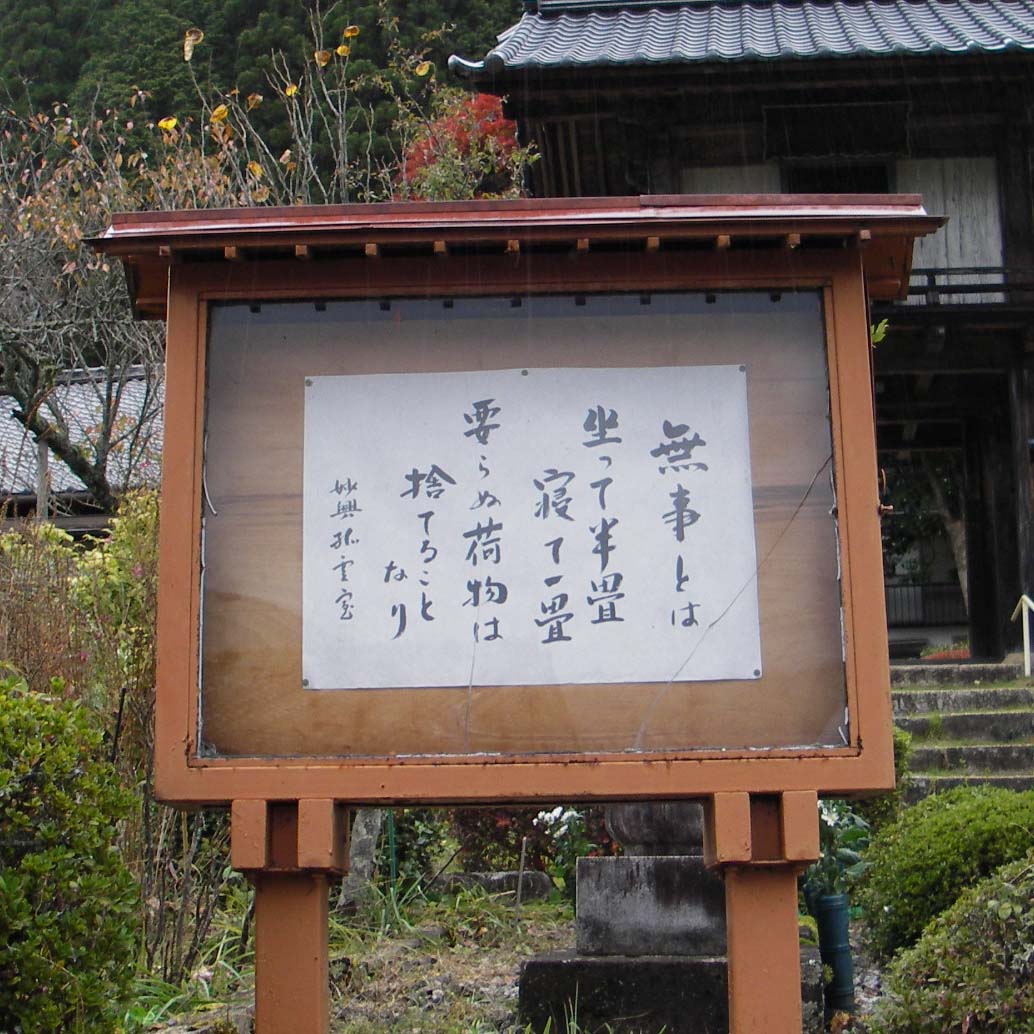 無事とは
坐って半畳
寝て一畳
要らぬ荷物は
捨てること
なり
妙興孤雲室